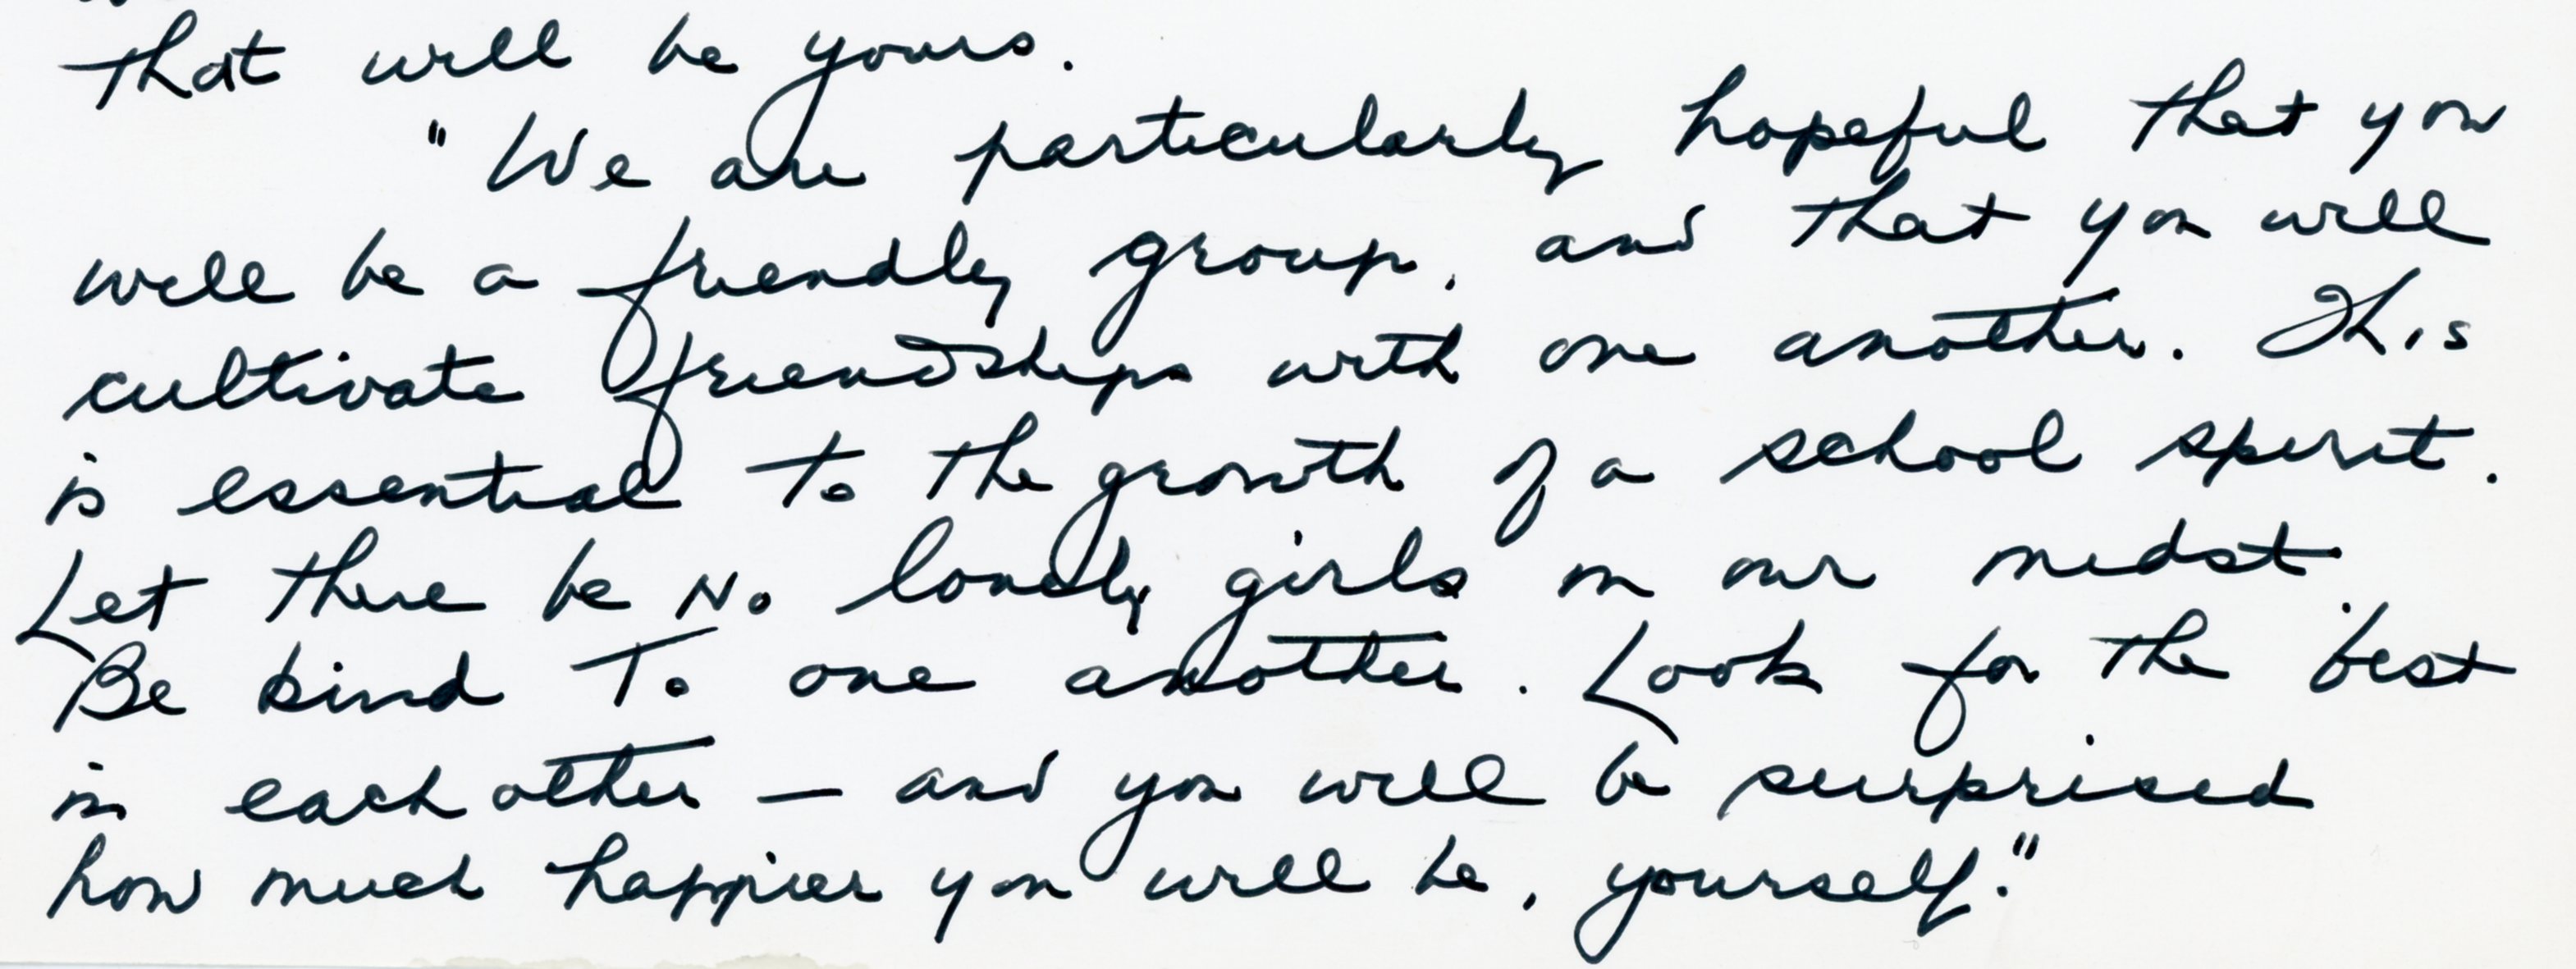 that will be yours.
"We are particularly hopeful that you
will be a friendly group, and that you will
cultivate friendships with one another. This
is essential to the growth of a school spirit.
Let there be no lonely girls in our midst.
Be kind to one another. Look for the best
in each other — and you will be surprised
how much happier you will be, yourself."